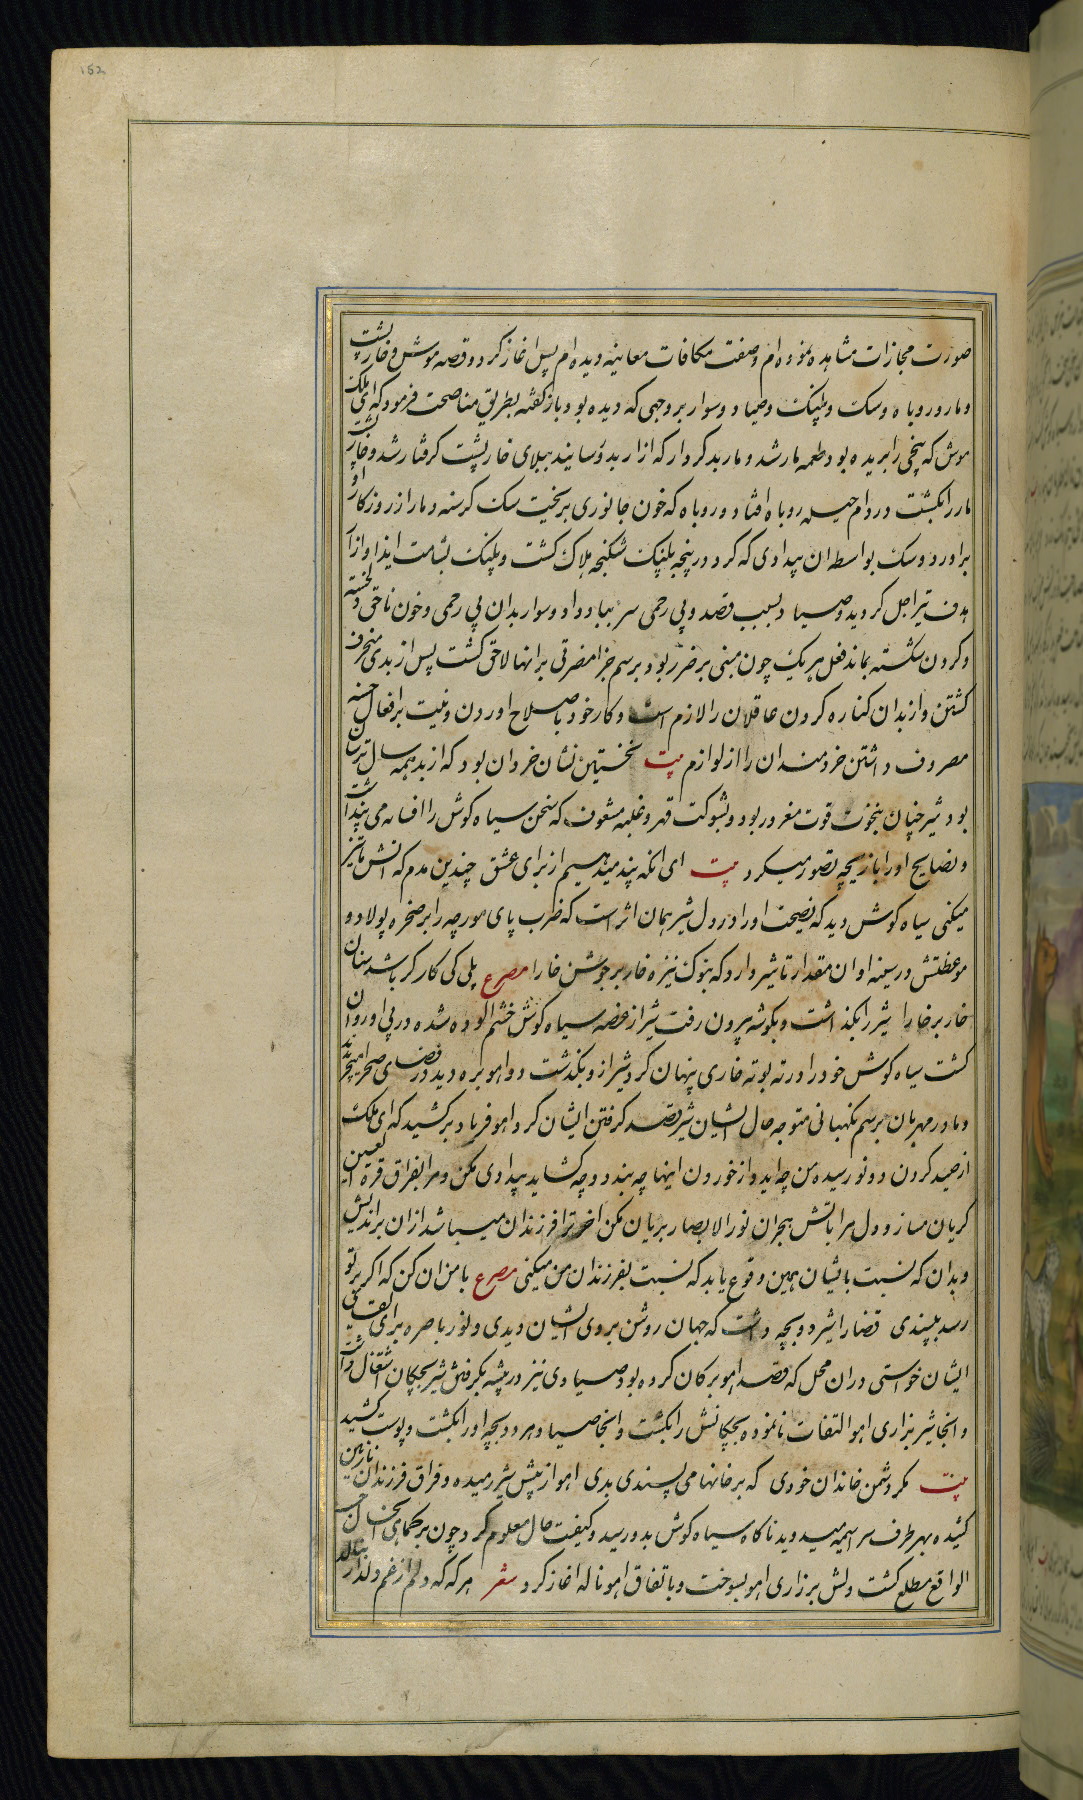 152
صورت مجازات مشاهده نموده ام و صفت مکافات معاینه دیده ام پس اغاز کرد و قصه موش و خارپشت
و مار و روباه و سک و پلنک و صیاد و سوار بر وجهی که دیده بود باز کفته بطریق مناصحت فرمود که ای ملک
موش که بیخی را بریده بود طعمه مار شد و مار بد کردار که ازار بدو رسانید ببلای خارپشت کرفتار شد و خارپشت
مار را بکشت در دام حیله روباه افتاد و روباه که خون جانوری بریخت سک کرسنه دمار از روزکار او
براورد و سک بواسطه ان بیدادی که کرد در پنجه پلنک شکنجه هلاک کشت و پلنک بشامت ایذا و ازار
هدف تیر اجل کردید و صیاد بسبب قصد و بی رحمی سر بباد داد و سوار بدان بی رحمی و خون ناحق خسته
و کردن شکسته بماند فعل هریک چون مبنی بر ضرر بود برسم جزا مضرتی برانها لاحق کشت پس از بدی منحرف
کشتن و از بدان کناره کردن عاقلان را لازم است و کار خود باصلاح اوردن و نیت بر افعال حسنه
مصروف داشتن خردمندان را از لوازم بیت نخستین نشان خرد ان بود که از بد همه سال ترسان
بود شیر چنان بنخوت قوت مغرور بود و بشوکت قهر و غلبه مشعوف که سخن سیاه کوش را افسانه می پنداشت
و نصایح او را بازیچه تصور میکرد بیت ای انکه پند میدهیم از برای عشق چندین مدم که اتش ما تیز
میکنی سیاه کوش دید که نصیحت او را در دل شیر همان اثر است که ضرب پای مورچه را بر صخره پولاد و
موعظتش در سینه او ان مقدار تاثیر دارد که بنوک نیزه خار بر جوشن خارا مصرع بلی کی کارکر باشد سنان
خار بر خارا شیر را بکذاشت و بکوشه بیرون رفت شیر از غصه سیاه کوش خشم الوده شده در پی او روان
کشت سیاه کوش خود را در ته بوته خاری پنهان کرد شیر از و بکذشت دو اهو بره دید در فضای صحرا میچرند
و مادر مهربان برسم نکهبانی متوجه حال ایشان شیر قصد کرفتن ایشان کرد اهو فریاد برکشید که ای ملک
از صید کردن دو نو رسیده من چه اید و از خوردن اینها چه بندد و چه کشاید بیدادی مکن و مرا بفراق قرة العین
کریان مساز و دل مرا باتش هجران نور الابصار بریان مکن اخر ترا فرزندان میباشد ازان براندیش
و بدان که نسبت بایشان همین وقوع یابد که نسبت بفرزندان من میکنی مصرع با من ان کن که اکر بر تو
رسد بپسندی قضارا شیر دو بچه داشت که جهان روشن بروی ایشان دیدی و نور باصره برای
ایشان خواستی دران محل که قصد اهو برکان کرده بود صیادی نیز در بیشه بکرفتن شیر بچکان اشتغال داشت
و اینجا شیر بزاری اهو التفات نانموده بچکانش را بکشت و انجا صیاد هر دو بچه او را بکشت و پوست کشید
بیت مکر دشمن خاندان خودی که بر خانها می پسندی بدی اهو از پیش شیر رمیده و فراق فرزندان نازنین
کشیده بهر طرف سراسیمه میدوید ناکاه سیاه کوش بدو رسید و کیفیت حال معلوم کرد چون بر کماهی
الواقع مطلع کشت دلش بر زاری اهو بسوخت و باتفاق اهو ناله اغاز کرد شعر هر که که دلم از غم دلدار بنالد